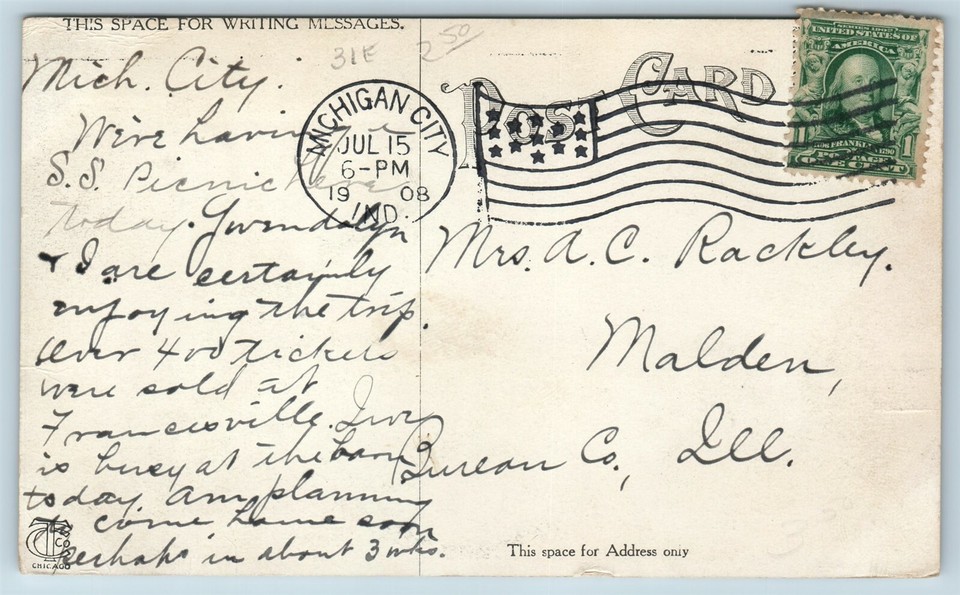 THIS SPACE FOR WRITING MESSAGES.
31E 2 50
POST CARD
SERIES 1902
UNITED STATES OF
AMERICA
FRANKLIN 1790
POSTAGE
1 ONE CENT 1
MICHIGAN CITY
JUL 15
6-PM
1908
IND.
Mich. City.
We're having a
S.S. Picnic here
today. Gwendolyn
+ I are certainly
enjoying the trip.
Over 400 tickets
were sold at
Francesville.
is busy at the barn
today am planning
to come home soon
perhaps in about 3 wks.
Mrs. A. C. Rackley.
Malden,
Bureau Co., Ill.
This space for Address only
CHICAGO